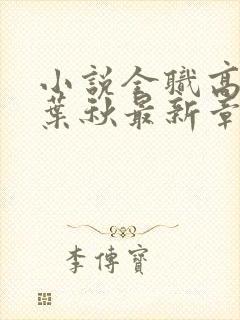 小説全職高
葉秋最新章
李傳寶